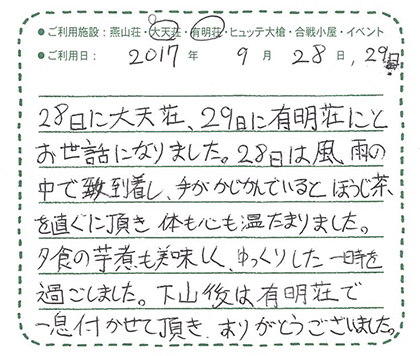 ●ご利用施設：燕山荘・大天荘・有明荘・ヒュッテ大槍・合戦小屋・イベント
●ご利用日： 2017 年 9 月 28 日, 29日
28日に大天荘、29日に有明荘にと
お世話になりました。28日は風雨の
中で到着し、手がかじかんでいると ほうじ茶
を直ぐに頂き 体も心も温たまりました。
夕食の芋煮も美味しく、ゆっくりした 一時を
過ごしました。下山後は有明荘で
一息付かせて頂き、ありがとうございました。